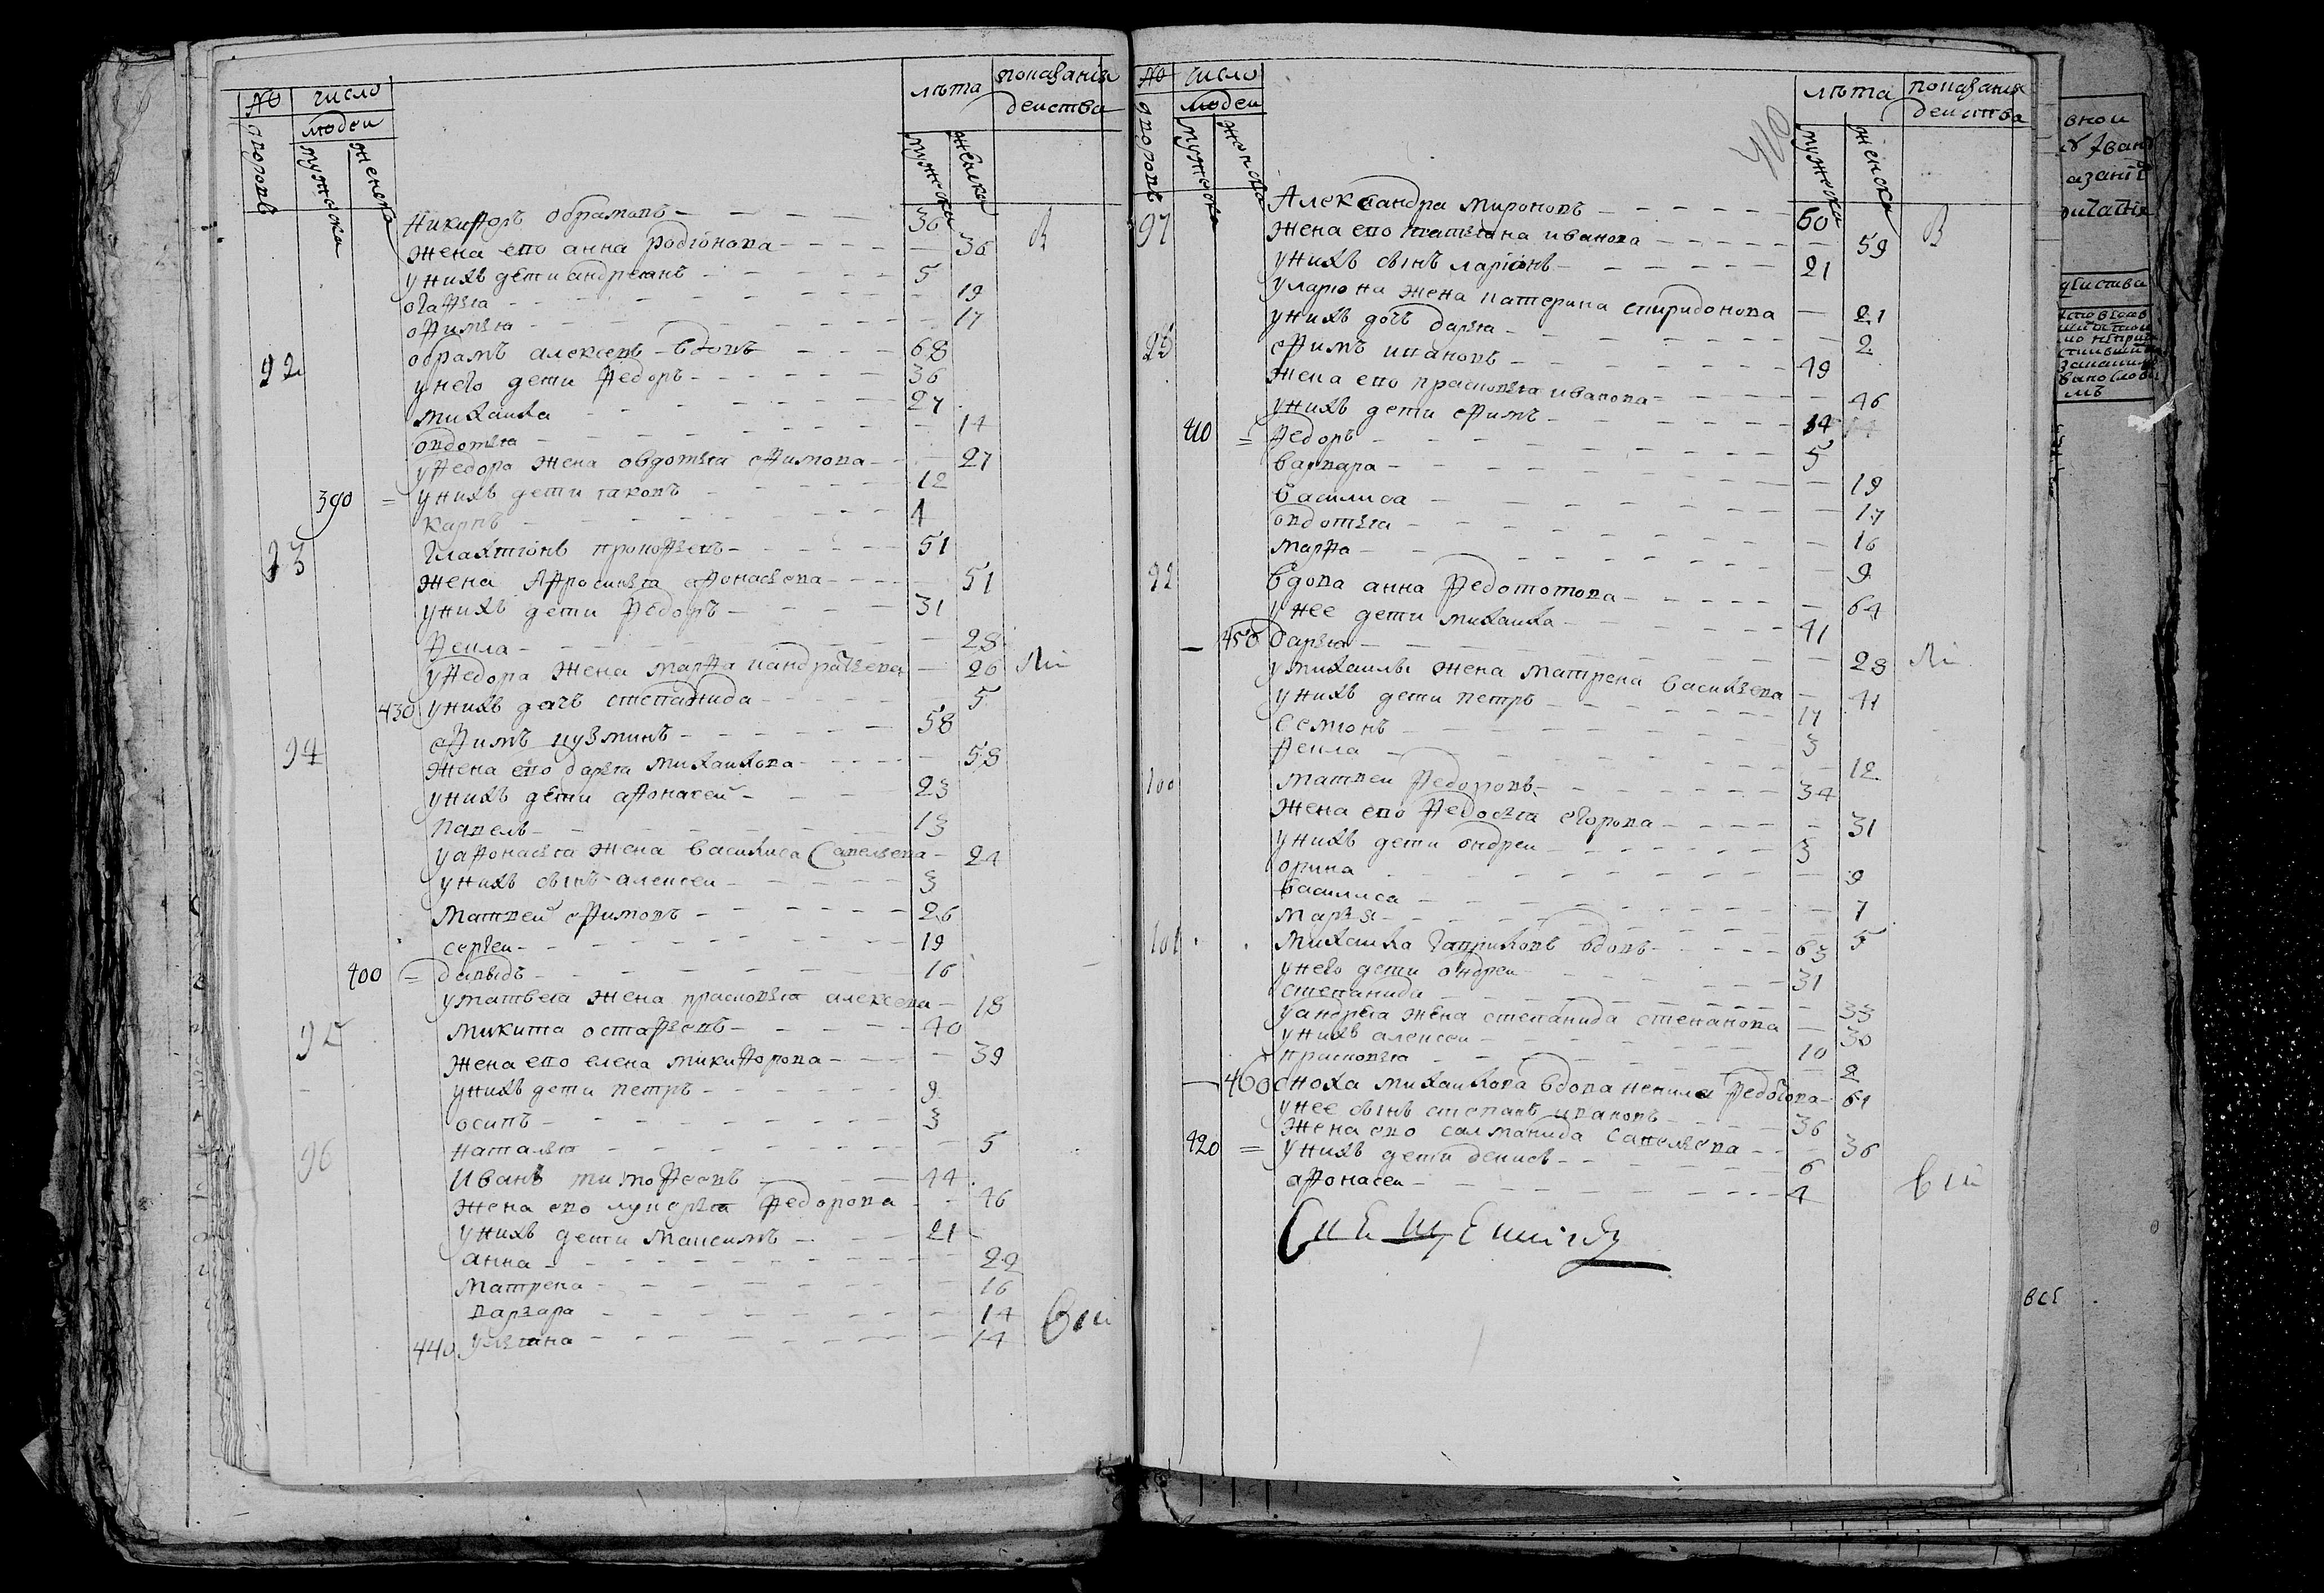 № дворовъ
число людеи
мужеска женска
лѣта
мужеска женска
показанія
деиства
Никифоръ обрамовъ 36
жена ево анна родіонова 36 В
унихъ дети андреянъ 5
агафья 19
офимья 17
92 обрамъ алексеевъ вдовъ 68
унего дети федоръ 36
михаила 27
овдотья 14
уфедора жена овдотья ефимова 27
390 = унихъ дети яковъ 12
карпъ 4
93 Галахтіонъ прокофьевъ 51
жена Афросинья афонасьева 51
унихъ дети федоръ 31
фекла 28
уфедора жена марфа кандратьева 26 Ли
430 унихъ дочь степанида 5
94 ефимъ кузминъ 58
жена ево дарья михаилова 58
унихъ дети афонасеи 23
павелъ 13
уафонасья жена василиса Савельева 24
унихъ сынъ алексеи 3
матвеи ефимовъ 26
сергеи 19
400 = давыдъ 16
уматвея жена прасковья алексеева 18
95 микита остафьевъ 40
жена ево елена микифорова 39
унихъ дети петръ 9
осипъ 3
наталья 5
96 Иванъ тимофеевъ 44
жена ево лукерья федорова 46
унихъ дети максимъ 21
анна 22
матрена 16
варвара 14 вси
440 ульяна 14
№ дворовъ
число людеи
мужеска женска
40
лѣта
мужеска женска
показания
деиства
97 Александра мироновъ 60
жена ево татьяна иванова 59 В
унихъ сынъ ларіонъ 21
улариона жена катерина спиридонова 21
унихъ дочь дарья 2
ефимъ ивановъ 49
жена ево прасковья иванова 46
унихъ дети ефимъ 14
410 = федоръ 5
варвара 19
василиса 17
овдотья 16
марфа 9
вдова анна федотова 64
унее дети михаила 41
450 дарья 28 Ли
умихаилы жена матрена васильева 41
унихъ дети петръ 17
семионъ 3
фекла 12
100 матвеи федоровъ 34
жена ево федосья егорова 31
унихъ дети андреи 3
орина 9
василиса 7
марья 5
101 михаила гавриловъ вдовъ 63
унего дети андреи 31
степанида 33
уандрея жена степанида степанова 30
унихъ алексеи 10
прасковья 2
460 сноха михаилова вдова ненила федотова 61
унее сынъ степанъ ивановъ 36
жена ево салманида савельева 36
420 = унихъ дети денисъ 6
афонасеи 4 вси
внои
азанї
деиства
все